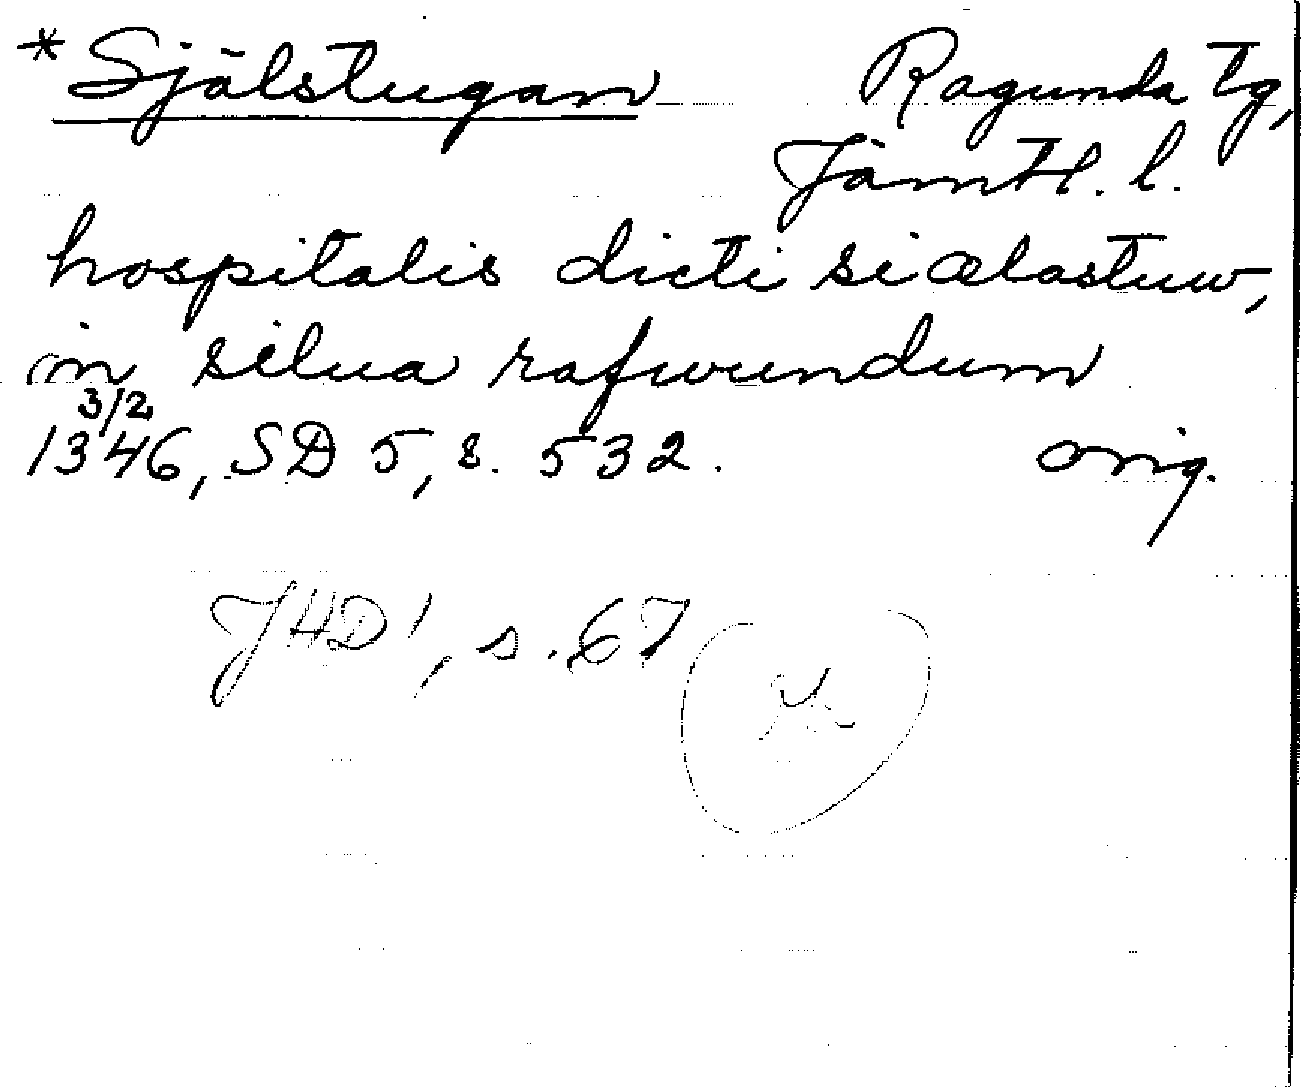 *Själstugan Ragunda tg,
Jämtl. l.
hospitalis dicti siælastuw,
in silua rafwundum
3/2
1346, SD 5, s. 532. orig.
JHD 1, s. 67